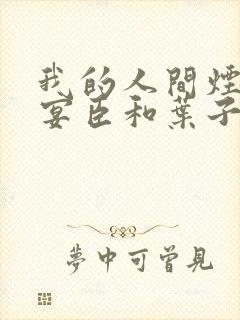 我的人間煙
宴臣和葉子
夢中可曾見